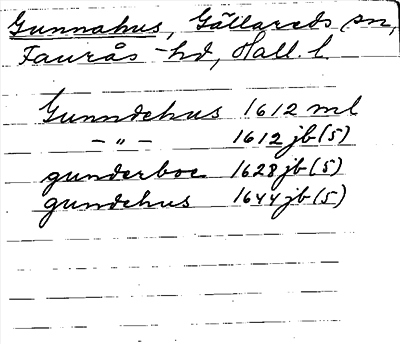 Gunnahus, Gällareds sn,
Faurås hd, Hall. l.
Gunndehus 1612 ml
- " - 1612 jb (5)
gunderboe 1628 jb (5)
gundehus 1644 jb (5)